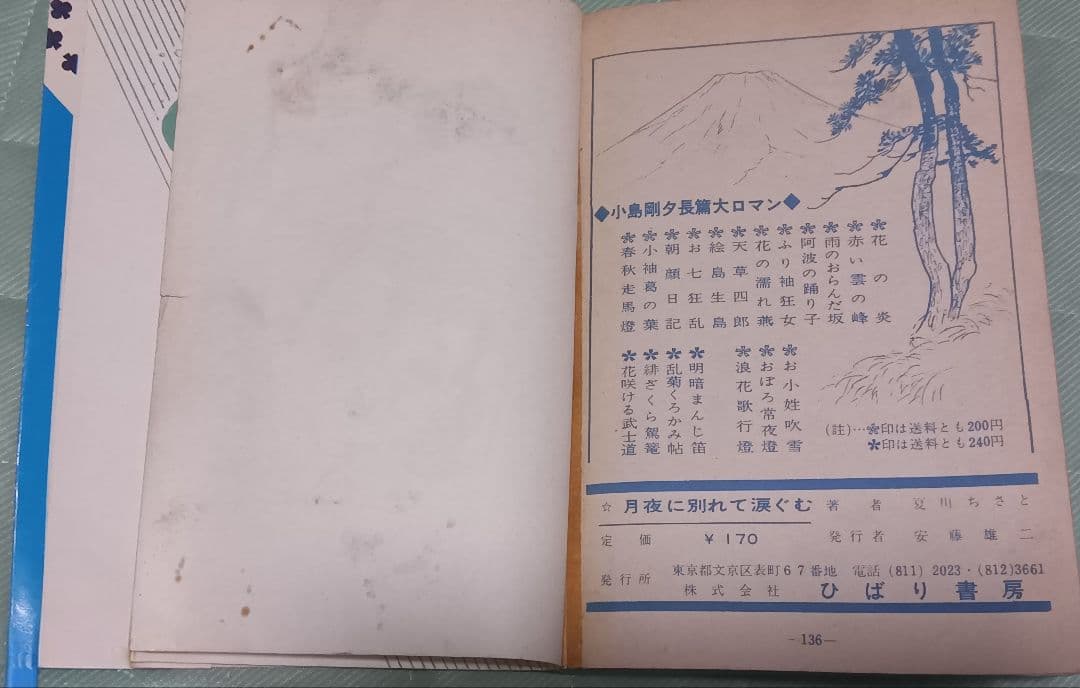 ◆小島剛夕長篇大ロマン◆
花の炎
赤い雲の峰
雨のおらんだ坂
阿波の踊り子
ふり袖狂女
花の濡れ燕
天草四郎
絵島生島
お七狂乱
朝顔日記
小袖葛の葉
春秋走馬燈
お小姓吹雪
おぼろ常夜燈
浪花歌行燈
明暗まんじ笛
乱菊くろかみ帖
緋ざくら駕篭
花咲ける武士道
(註)…❀印は送料とも200円
✽印は送料とも240円
☆ 月夜に別れて涙ぐむ
著者 夏川ちさと
定価 ¥170
発行者 安藤雄二
発行所 東京都文京区表町67番地 電話(811)2023・(812)3661
株式会社 ひばり書房
―136―